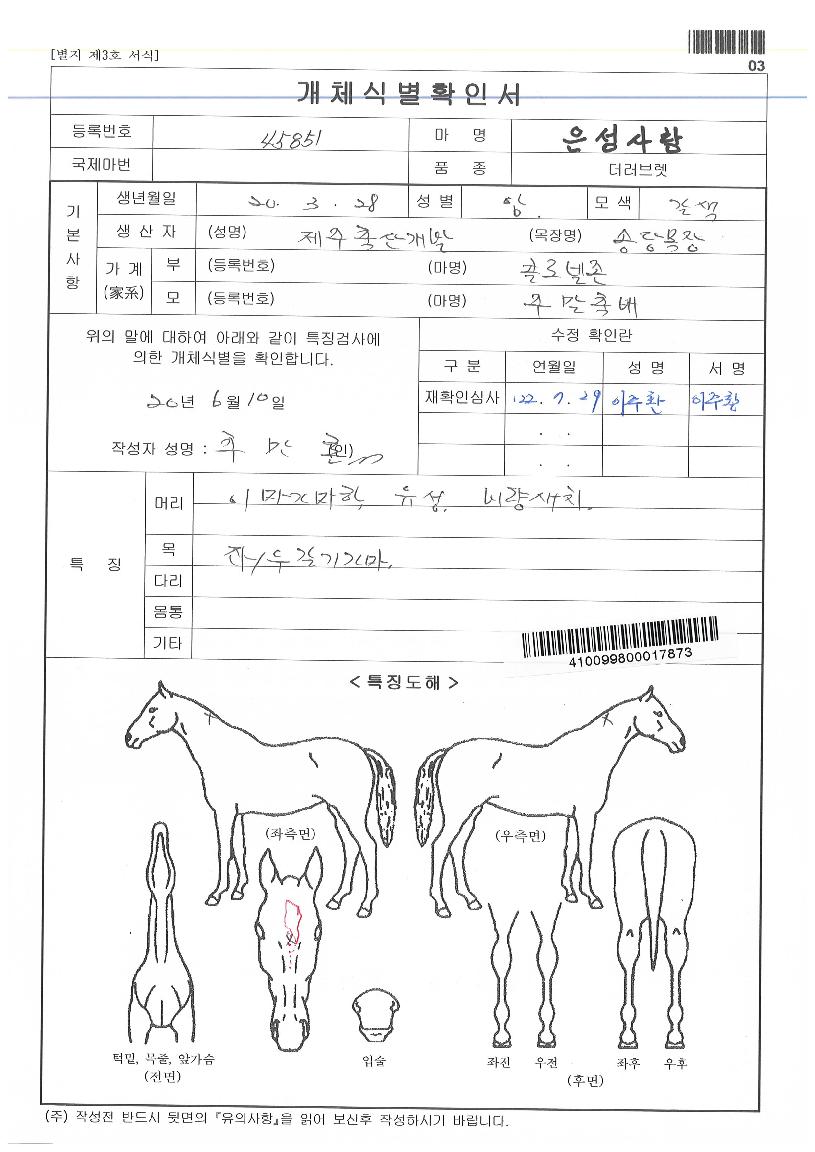 [별지 제3호 서식]
03
개체식별확인서
등록번호 45851 마 명 은성사랑
국제마번 품 종 더러브렛
기본사항
생년월일 20. 3. 28 성별 암. 모색 갈색
생산자 (성명) 제주축산개발 (목장명) 송당목장
가계 (家系) 부 (등록번호) (마명) 콜로넬존
모 (등록번호) (마명) 주말축배
위의 말에 대하여 아래와 같이 특징검사에
의한 개체식별을 확인합니다.
20년 6월 10일
작성자 성명 : (인)
수정 확인란
구분 연월일 성명 서명
재확인심사 '22. 7. 29 이주환 이주환
. .
. .
특 징
머리 유성. 비량새치.
목
다리
몸통
기타
410099800017873
< 특징도해 >
(좌측면) (우측면)
턱밑, 목줄, 앞가슴
(전면)
입술
좌진 우전 좌후 우후
(후면)
(주) 작성전 반드시 뒷면의 『유의사항』을 읽어 보신후 작성하시기 바랍니다.